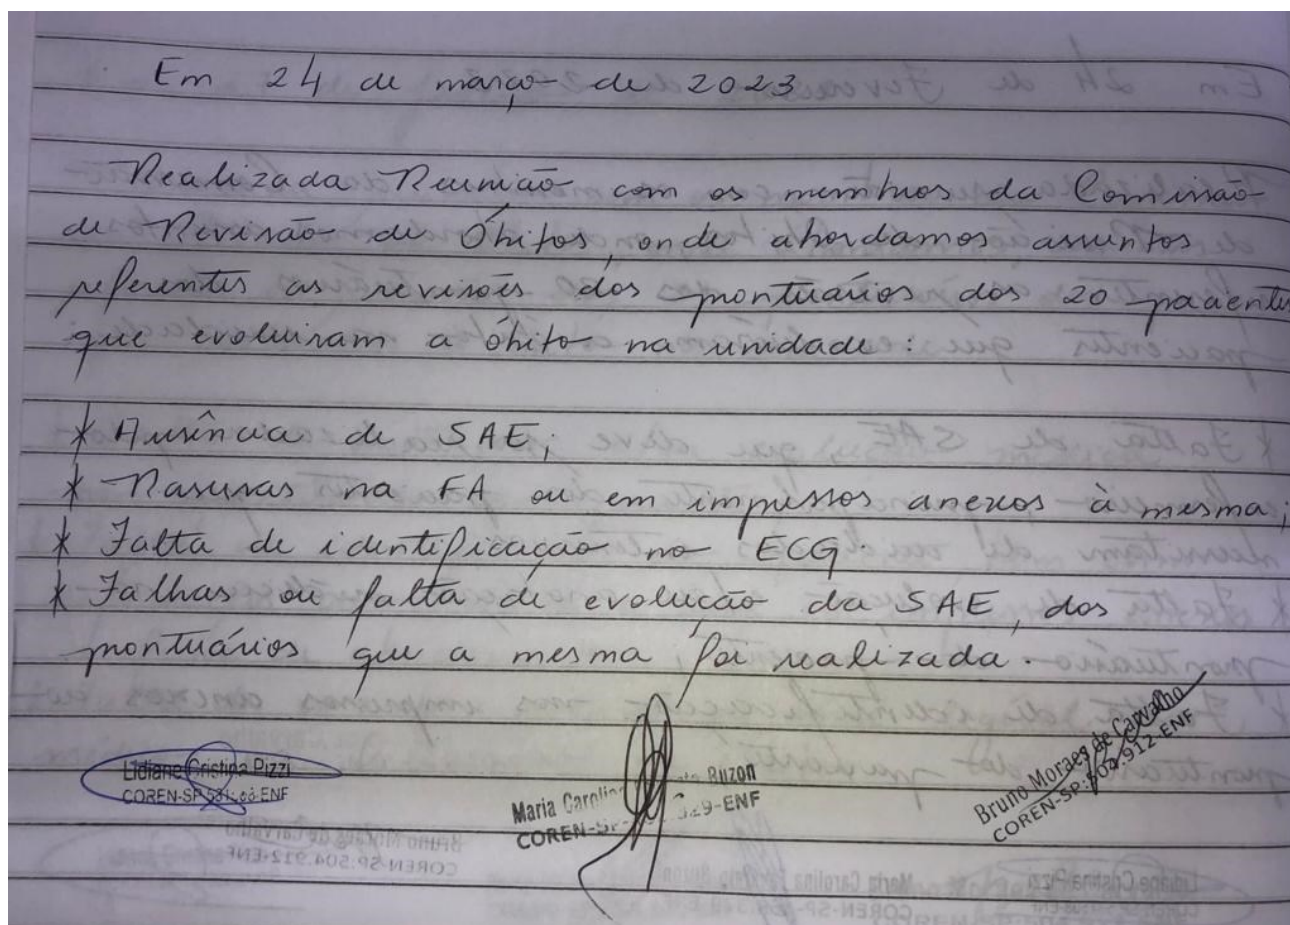 Em 24 de março de 2023
Realizada Reunião com os membros da Comissão
de Revisão de Óbitos, onde abordamos assuntos
referentes as revisões dos prontuários dos 20 pacientes
que evoluiram a óbito na unidade:
* Ausência de SAE;
* Rasuras na FA ou em impressos anexos à mesma;
* Falta de identificação no ECG.
* Falhas ou falta de evolução da SAE, dos
prontuários que a mesma foi realizada.
Lidiane Cristina Pizzi
COREN-SP ENF
Maria Carolina Buzon
COREN-SP 329-ENF
Bruno Moraes de Carvalho
COREN-SP:504.912-ENF